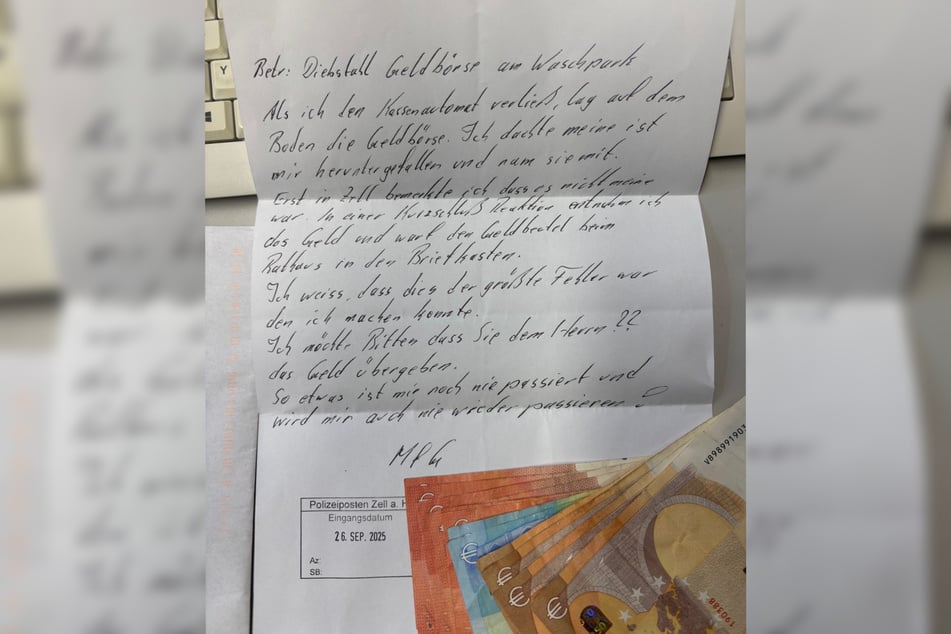 Betr: Diebstahl Geldbörse am Waschpark
Als ich den Kassenautomat verließ, lag auf dem
Boden die Geldbörse. Ich dachte meine ist
mir heruntergefallen und nam sie mit.
Erst in Zell bemerkte ich dass es nicht meine
war. In einer Kurzschluß Reaktion entnahm ich
das Geld und warf den Geldbeutel beim
Rathaus in den Briefkasten.
Ich weiss, dass, dies der größte Fehler war
den ich machen konnte.
Ich möchte Bitten dass Sie dem Herrn ??
das Geld übergeben.
So etwas ist mir noch nie passiert und
wird mir auch nie wieder passieren !
Polizeiposten Zell a. H
Eingangsdatum
26. SEP. 2025
Az:
SB:
V898991903
190388
Y